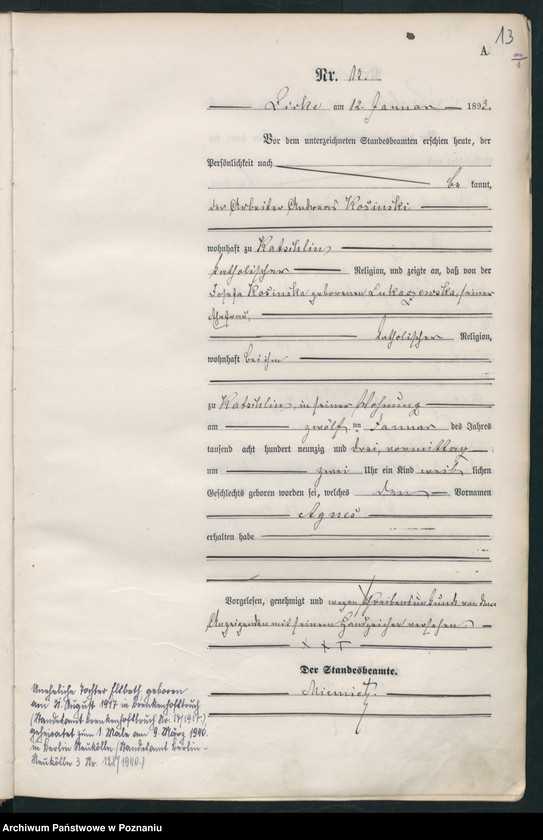 13
A.
Nr. 12.
Zirke am 12 Januar 1893.
Vor dem unterzeichneten Standesbeamten erschien heute, der
Persönlichkeit nach
be kannt,
der Arbeiter Andreas Kosinski
wohnhaft zu Katschlin
katholischer Religion, und zeigte an, daß von der
Josefa Kosinska geborenen Lukaszewska, seiner
Ehefrau,
katholischer Religion,
wohnhaft bei ihm
zu Katschlin, in seiner Wohnung
am zwölf ten Januar des Jahres
tausend acht hundert neunzig und drei, vormittag
um zwei Uhr ein Kind weib lichen
Geschlechts geboren worden sei, welches den Vornamen
Agnes
erhalten habe
Vorgelesen, genehmigt und wegen Schreibensunkunde von dem
Anzeigenden mit seinem Handzeichen versehen
+++
Der Standesbeamte.
Uneheliche Tochter Elsbeth geboren
am 21. August 1917 in Brenkenhofsbruch
(Standesamt Brenkenhofsbruch Nr. 17/1917.)
geheiratet zum 1 Male am 9 März 1940.
in Berlin Neukölln (Standesamt Berlin-
Neukölln 3 Nr. 128/1940.)
Archiwum Państwowe w Poznaniu